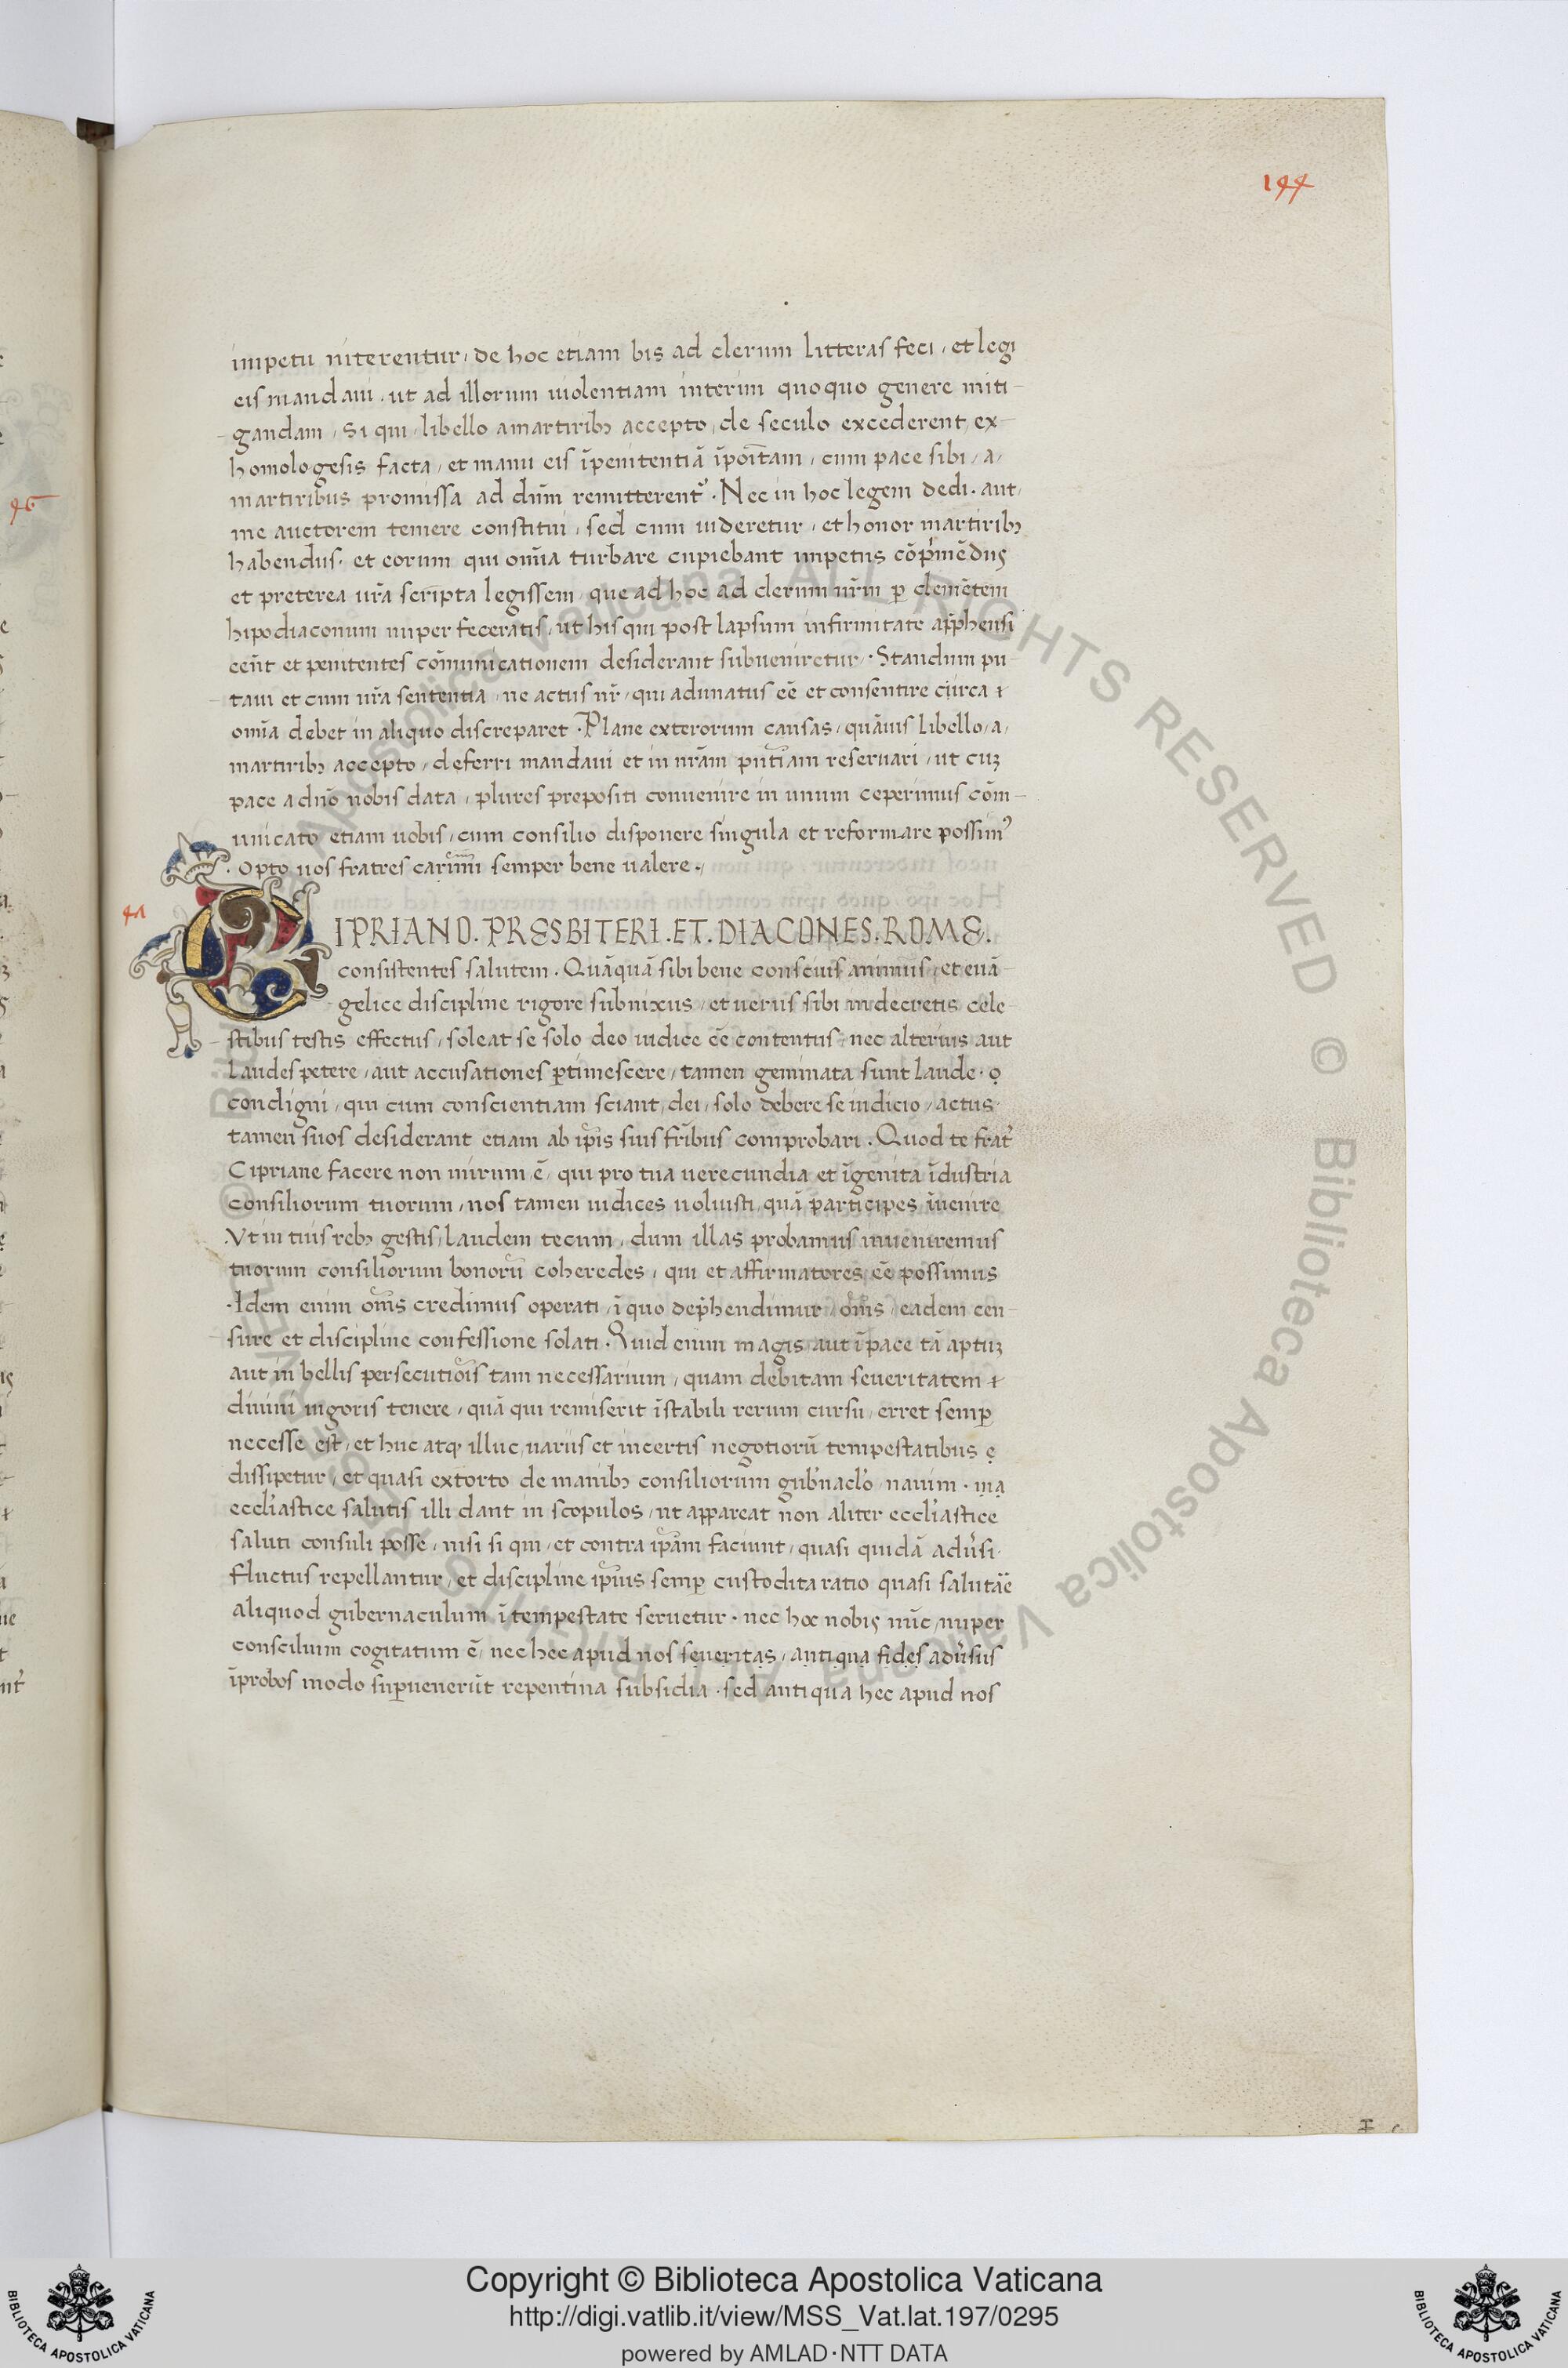 144
impetu niterentur, de hoc etiam bis ad clerum litteras feci, et legi
eis mandaui. ut ad illorum uiolentiam interim quoquo genere miti-
gandam, si qui, libello amartiribꝫ accepto, de seculo excederent, ex-
homologesis facta, et manu eis ī penitentiā īpoītam, cum pace sibi, a,
martiribus promissa ad dūm remitterent᷑. Nec in hoc legem dedi. aut
me auctorem temere constitui, sed cum uideretur, et honor martiribꝫ
habendus. et eorum qui om̄ia turbare cupiebant impetus cōp'mēdus
et preterea ur̄a scripta legissem, que ad hoc ad clerum nr̄m ꝑ clemētem
hipodiaconum nuper feceratis, ut his qui post lapsum infirmitate app̄hensi
eēnt et penitentes cōmunicationem desiderant subueniretur. Standum pu-
taui et cum ur̄a sententia, ne actus nr̄, qui adunatus eē et consentire circa
om̄ia debet in aliquo discreparet. Plane exterorum causas, quāuis libello, a,
martiribꝫ accepto, deferri mandaui et in nr̄am pn̄tiam reseruari, ut cuꝫ
pace a dn̄o nobis data, plures prepositi conuenire in unum ceperimus cōm-
unicato etiam uobis, cum consilio disponere singula et reformare possim᾽
. Opto uos fratres carīmi semper bene ualere.
CIPRIANO. PRESBITERI. ET. DIACONES. ROME.
consistentes salutem. Quāquā sibi bene conscius animus, et euā-
gelice discipline rigore subnixus, et uerus sibi in decretis cele-
stibus testis effectus, soleat se solo deo iudice eē contentus, nec alterius aut
laudes petere, aut accusationes ꝑtimescere, tamen geminata sunt laude.
condigni, qui cum conscientiam sciant, dei, solo debere se iudicio, actus.
tamen suos desiderant etiam ab ip̄is suis fr̄ibus comprobari. Quod te frat᷑
Cipriane facere non mirum ē, qui pro tua uerecundia et īgenita īdustria
consiliorum tuorum, nos tamen iudices uoluisti, quā participes īuenire
Vt in tuis rebꝫ gestis, laudem tecum, dum illas probamus inueniremus
tuorum consiliorum bonorū coheredes, qui et affirmatores eē possimus
. Idem enim om̄s credimus operati, ī quo dep̄hendimur, om̄s, eadem cen-
sure et discipline confessione solati. Quid enim magis aut ī pace tā aptuꝫ
aut in bellis persecutiōis tam necessarium, quam debitam seueritatem
diuini uigoris tenere, quā qui remiserit īstabili rerum cursu, erret semꝑ
necesse est, et huc atqꝫ illuc, uariis et incertis negotiorū tempestatibus
dissipetur, et quasi extorto de manibꝫ consiliorum gub᷑naclo, nauim.
eccl'iastice salutis illi dant in scopulos, ut appareat non aliter eccl'iastice
saluti consuli posse, nisi si qui, et contra ip̄am faciunt, quasi quidā adu᷑si.
fluctus repellantur, et discipline ip̄ius semꝑ custodita ratio quasi salutāē
aliquod gubernaculum ī tempestate seruetur. nec hoc nobis nūc, nuper
conscilium cogitatum ē, nec hec apud nos seueritas, antiqua fides adu᷑sus
īprobos modo suꝑuenerūt repentina subsidia. sed antiqua hec apud nos
Copyright © Biblioteca Apostolica Vaticana
http://digi.vatlib.it/view/MSS_Vat.lat.197/0295
powered by AMLAD·NTT DATA